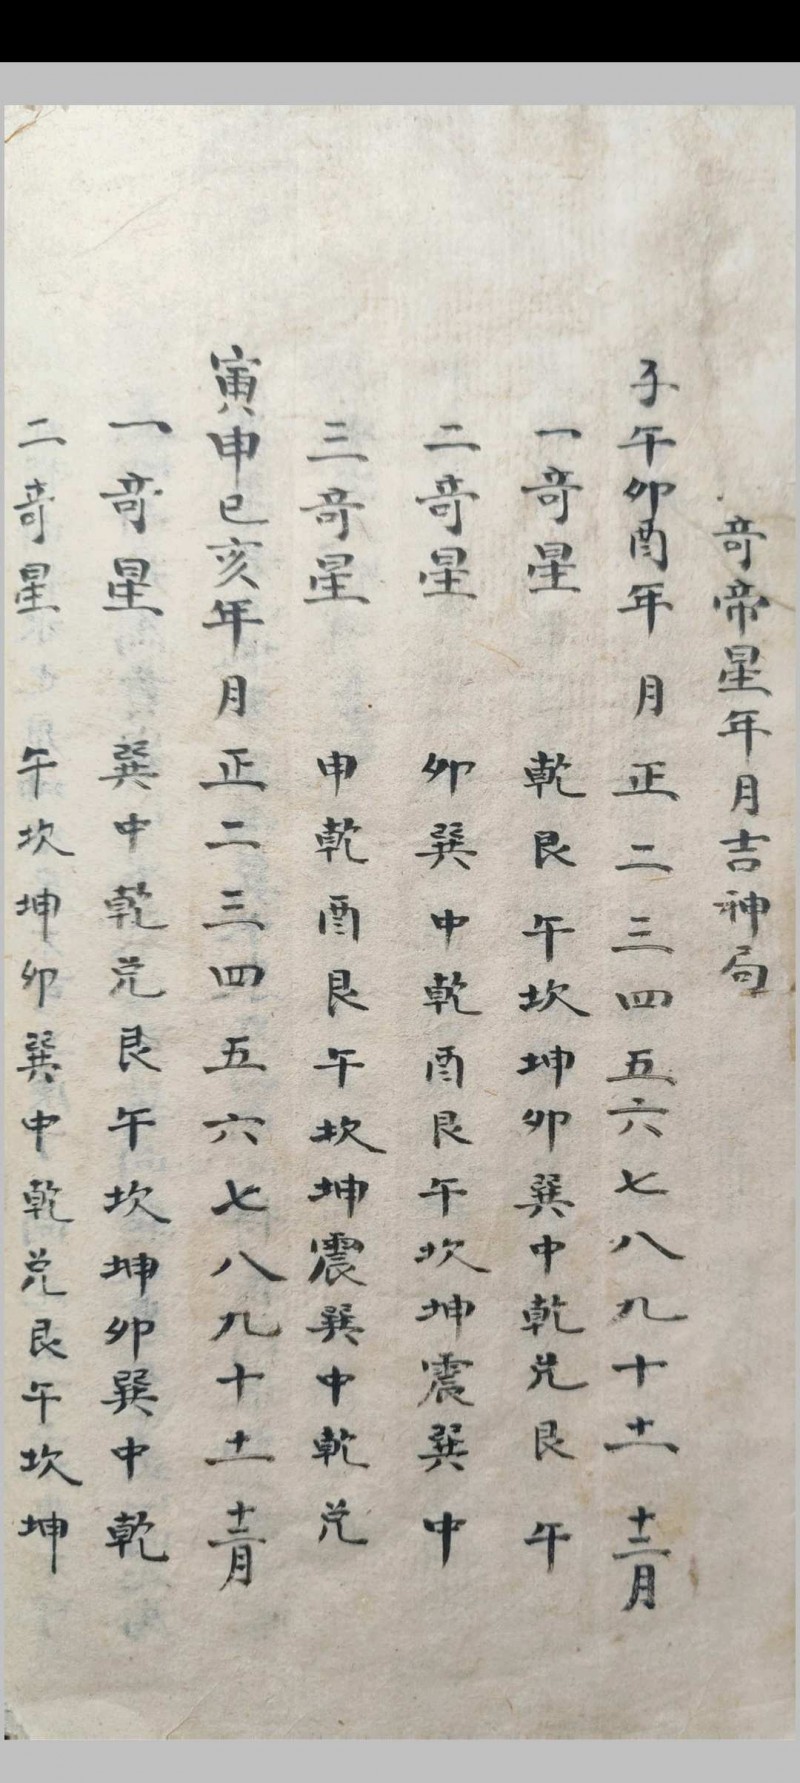 奇帝星年月吉神局
子午卯酉年月正二三四五六七八九十十一十二月
一奇星乾艮午坎坤卯巽中乾兑艮午
二奇星卯巽中乾酉艮午坎坤震巽中
三奇星申乾酉艮午坎坤震巽中乾兑
寅申巳亥年月正二三四五六七八九十十一十二月
一奇星巽中乾兑艮午坎坤卯巽中乾
二奇星午坎坤卯巽中乾兑艮午坎坤